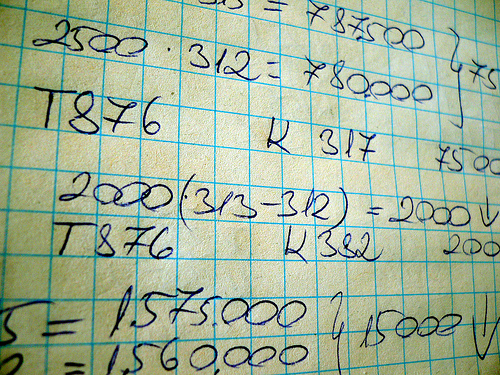 = 787500 } 75
2500 · 312 = 780.000
T876 K 317 7500
2000 (313-312) = 2000 ↓
T876 K382 200
5 = 1.575.000 } 15000 ↓
= 1.560.000